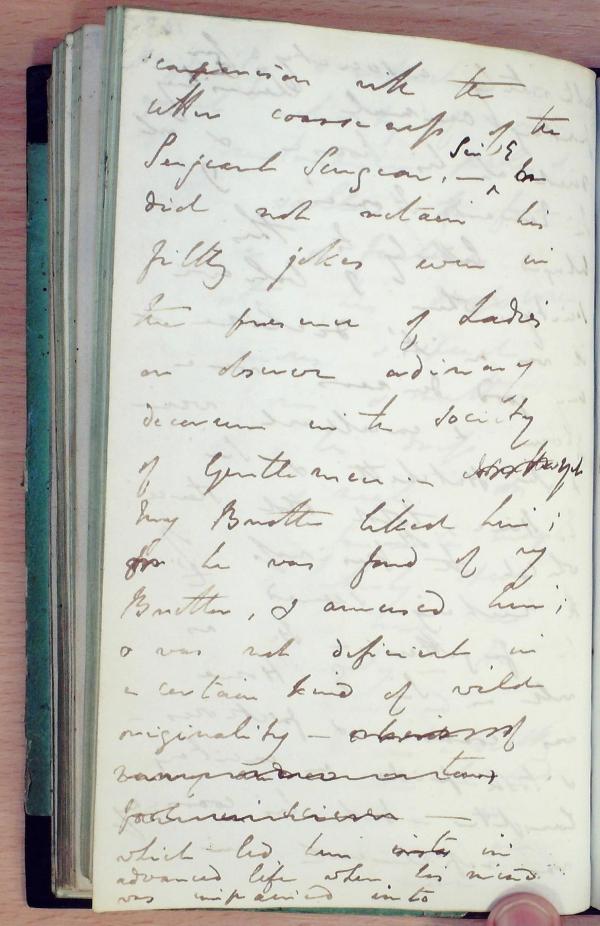 comparison with the
utter coarseness of the
Sergeant Surgeon, — Sir E
did not retain his
filthy jokes even in
the presence of Ladies
or observe ordinary
decorum in the society
of Gentlemen —
My Brother liked him;
for he was fond of my
Brother, & amused him;
& was not deficient in
a certain kind of wild
originality —
which led him in
advanced life when his mind
was impaired into